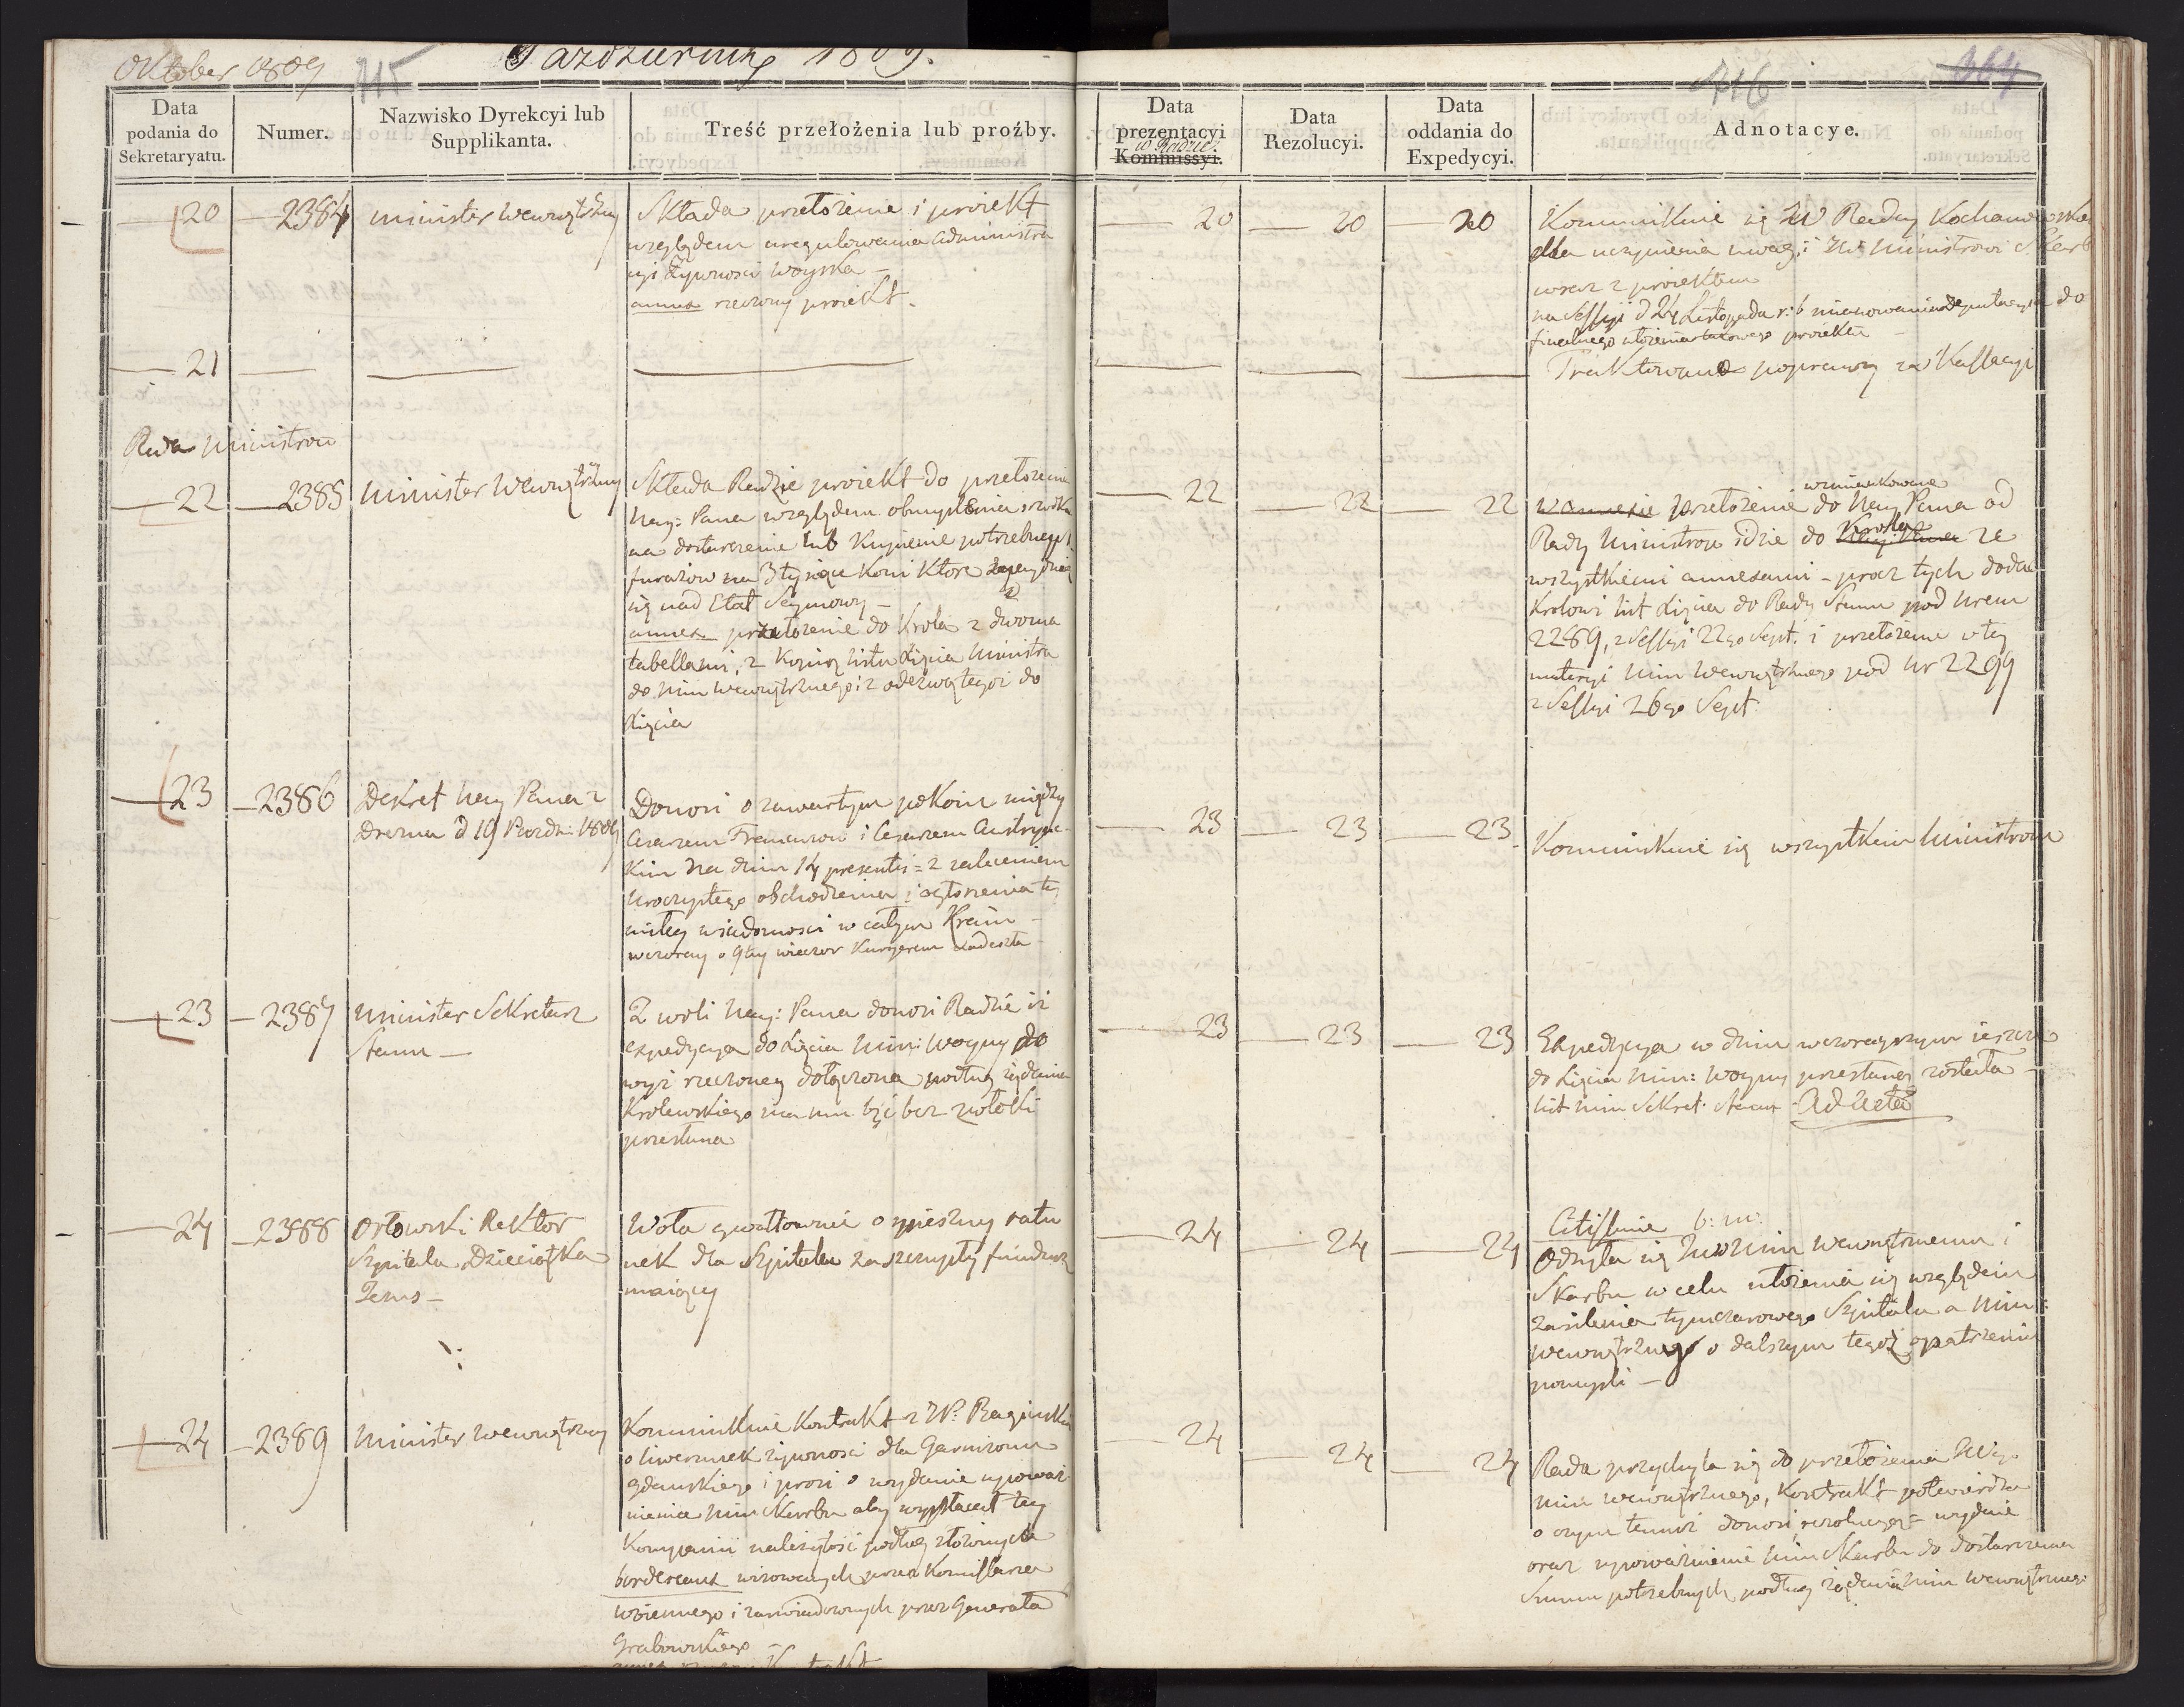 Oktober 1809
715
Październik 1809.
716
364
Data
podania do
Sekretaryatu.
Numer.
Nazwisko Dyrekcyi lub
Supplikanta.
Treść przełożenia lub proźby.
Data
prezentacyi
w Radzie
Kommissyi.
Data
Rezolucyi.
Data
oddania do
Expedycyi.
Adnotacye.
20
2384
minister Wewnętrzny
Składa przełożenie i proiekt
względem uregulowania administra
cyi Żywnosci woyska –
annex rzeczony proiekt.
20
20
20
Kommunikuie się JW Radcy Kochanowskie
dla uczynienia uwag, i JW Ministrowi Skarb
wraz z proiektem
na Sessyi d 24 Listopada r: b mianowana deputacya do
finalnego ułożenia takowego proiektu
21
Traktowano poprawy za Kassacyi
Rada Ministrow
22
2385
Minister Wewnętrzny
Składa Radzie proiekt do przełożenia
Nay: Pana względem obmyslenia srodka
na dostarczenie lub Kupienie potrzebnych
furażow na 3 tysiące Koni Ktore
się nad Etat Seymowy –
annex przełożenie do Krola z dwoma
tabellami, z Kopią listu Xięcia Ministra
do Min Wewnętrznego i z odezwą tegoż do
Xięcia
22
22
22
wzmiankowane
w annexie przełożenie do Nay Pana od
Rady Ministrow idzie do Krola Nay: Pana ze
wszystkiemi annexami – procz tych dodać
Krolowi list Xięcia do Rady Stanu pod Nrem
2289, z Sessyi 22go Sept. i przełożenie w tey
materyi Min Wewnętrznego pod Nr 2299
z Sessyi 26go Sept.
23
2386
Dekret Nay Pana z
Drezna d 19 Pazdz: 1809
Donosi o zawartym pokoiu między
Cesarzem Francuzow i Cesarzem Austryac-
kim na dniu 14 presentis = z zaleceniem
uroczystego obchodzenia i ogłoszenia tey
miłey wiadomosci w całym Kraiu –
wczoray o 9tey wieczor Kuryerem nadeszła
23
23
23
Kommunikuie się wszystkim Ministrom
23
2387
Minister Sekretarz
Stanu –
Z woli Nay: Pana donosi Radzie iż
expedycya do Xięcia Min: Woyny do
wyż rzeczoney dołączona podług żądania
Krolewskiego ma mu być bez zwłoki
przesłana
23
23
23
Expedycya w dniu wczorayszym ieszcze
do Xięcia Min: Woyny przesłaną została –
list Min Sekret: Stanu – Ad Acta
24
2388
Orłowski Rektor
Szpitala Dzieciątka
Jezus –
Woła gwałtownie o spieszny ratu
nek dla Szpitala za szczupły fundusz
maiący
24
24
24
Citissime b: m:
Odsyła się JWW Min Wewnętrznemu i
Skarbu w celu ułożenia się względem
zasilenia tymczasowego Szpitalu a Min:
Wewnętrznego o dalszym tegoż opatrzeniu
pomysli –
24
2389
Minister Wewnętrzny
Kommunikuie Kontrakt z JP.
o liwerunek żywnosci dla Garnizonu
gdanskiego i prosi o wydanie upoważ
nienia Min Skarbu aby wypłacał tey
Kompanii należytość podług złożonych
bordereaux wizowanych przez Kommissarza
Woiennego i zaswiadczonych przez Generała
Grabowskiego –
24
24
24
Rada przychyla się do przełożenia JWgo
Min Wewnętrznego, Kontrakt potwierdza
o czym temuż donosi rezolucyą = wydaie
oraz upoważnienie Min Skarbu do dostarczenia
Summ potrzebnych podług żądania Min Wewnętrznego